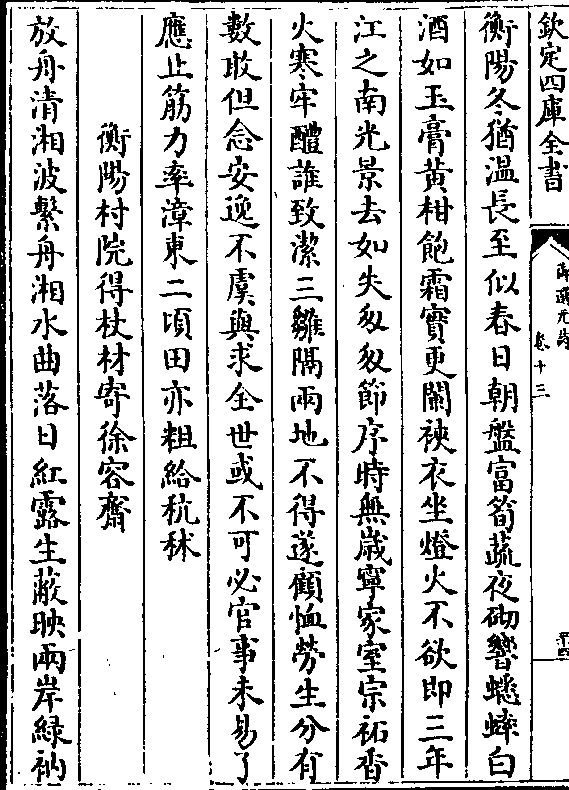 欽定四庫全書
御選元詩
卷十三
衡陽冬猶溫長至似春日朝盤富筍蔬夜砌響蟋蟀白
酒如玉膏黃柑飽霜實更闌裌衣坐燈火不欲即三年
江之南光景去如失匆匆節序時無歲寧家室宗祏香
火寒牢醴誰致潔三雛隔兩地不得遂顧恤勞生分有
數敢但念安逸不虞與求全世或不可必官事未易了
應止筋力率漳東二頃田亦粗給秔秫
衡陽村院得杖材寄徐容齋
放舟清湘波繫舟湘水曲落日紅露生蔽映兩岸綠衲